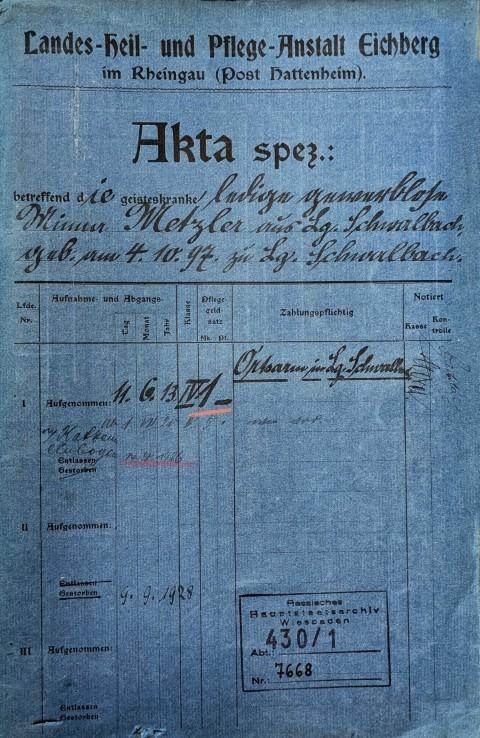 Landes-Heil- und Pflege-Anstalt Eichberg
im Rheingau (Post Hattenheim).
Akta spez.:
betreffend die geisteskranke ledige gewerblose
Minna Metzler aus Lg. Schwalbach,
geb. am 4.10.97. zu Lg. Schwalbach.
Lfde. Nr.
Aufnahme- und Abgangs-
Tag
Monat
Jahr
Klasse
Pflege-
geld-
satz
Mk. Pf.
Zahlungspflichtig
Notiert
Kasse
Kon-
trolle
I Aufgenommen: 11. 6. 13. IV 1 — Ortsarm in Lg. Schwalbach
Entlassen
Gestorben
II Aufgenommen:
Entlassen
Gestorben 9. 9. 1928
III Aufgenommen:
Entlassen
Gestorben
Hessisches
Hauptstaatsarchiv
Wiesbaden
Abt.: 430/1
Nr.: 7668